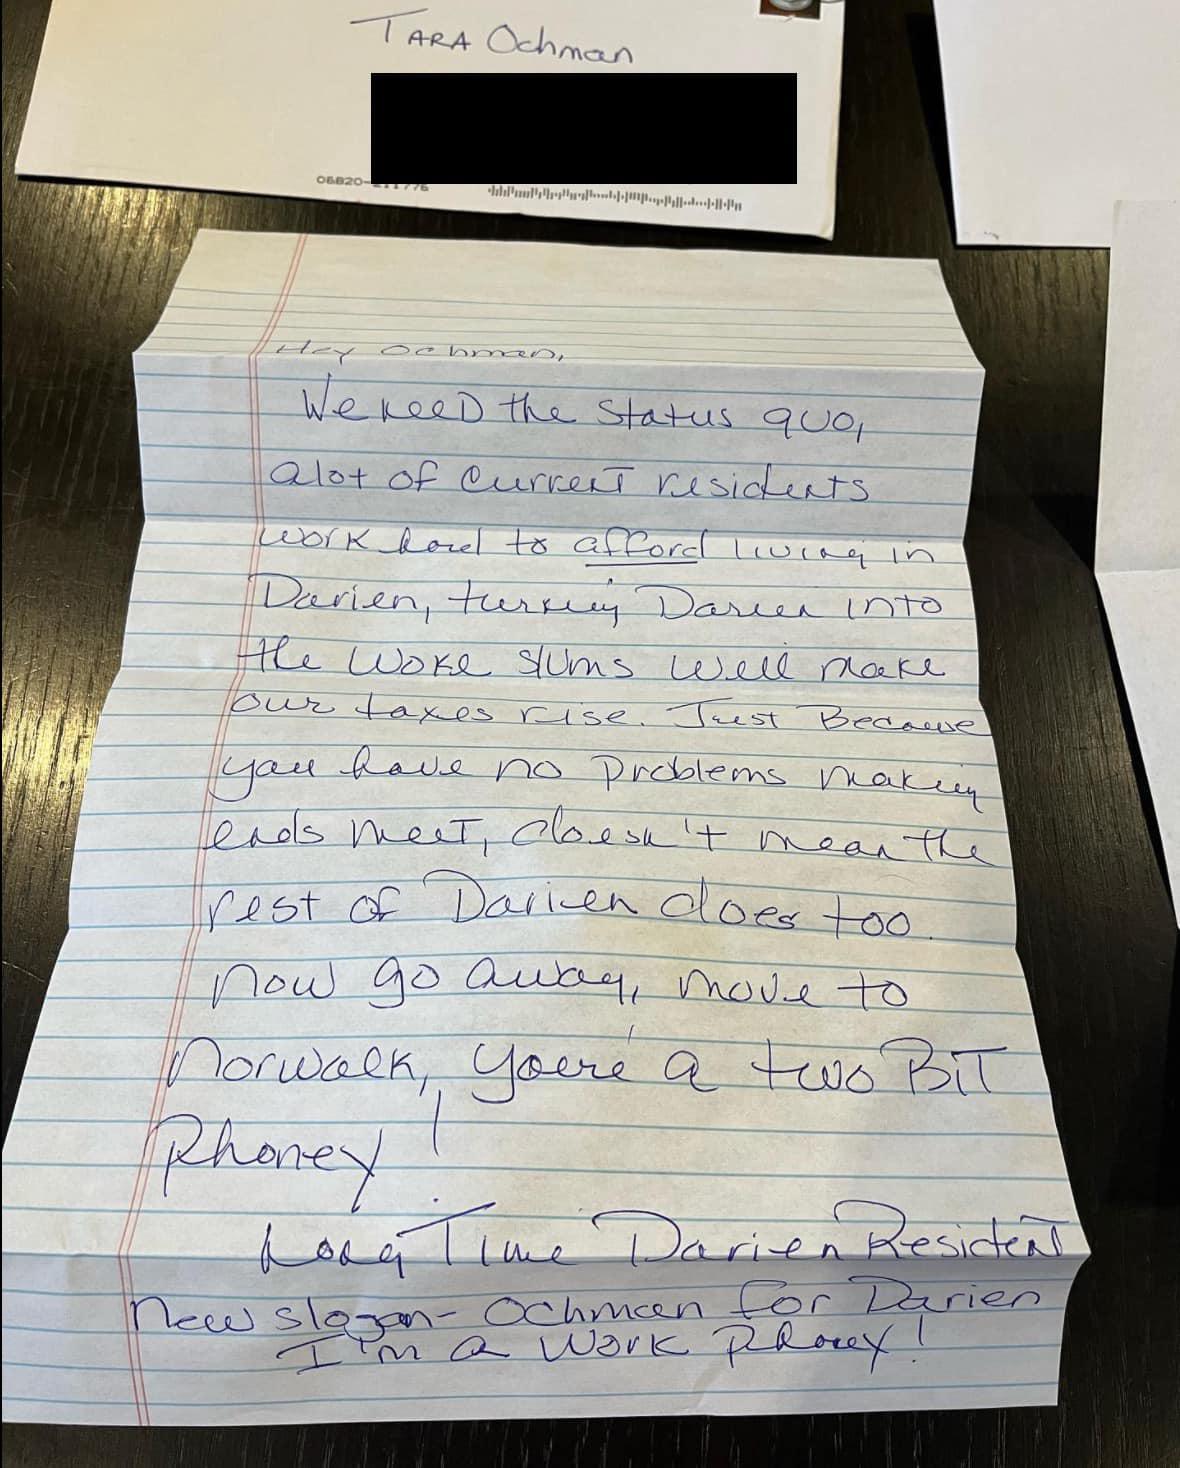 TARA Ochman
06820-
Hey Ochman,
We need the status quo,
alot of current residents
work hard to afford living in
Darien, turning Darien into
the woke slums will make
our taxes rise. Just Because
you have no problems making
ends meet, doesn't mean the
rest of Darien does too.
now go away, move to
Norwalk, you're a two BiT
Phoney!
Long Time Darien Resident
New slogan- Ochman for Darien
I'm a Work Phoney!